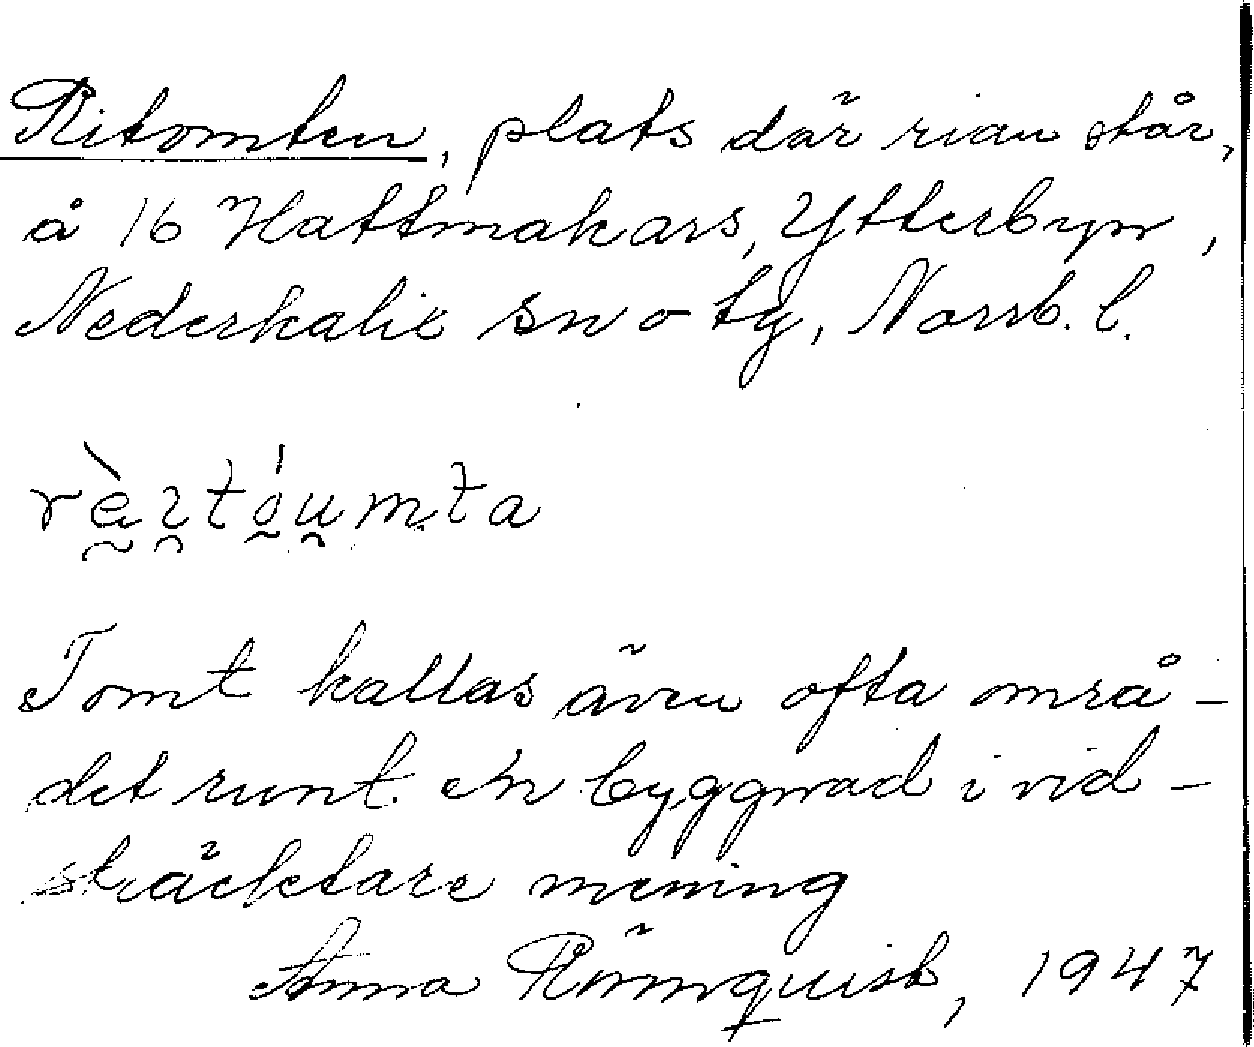 Ritomten, plats där rian står,
å 16 Hattmakars, Ytterbyn,
Nederkalix sn o tg, Norrb. l.
Tomt kallas även ofta områ-
det runt en byggnad i vid-
sträcktare mening
Anna Rönnquist, 1947